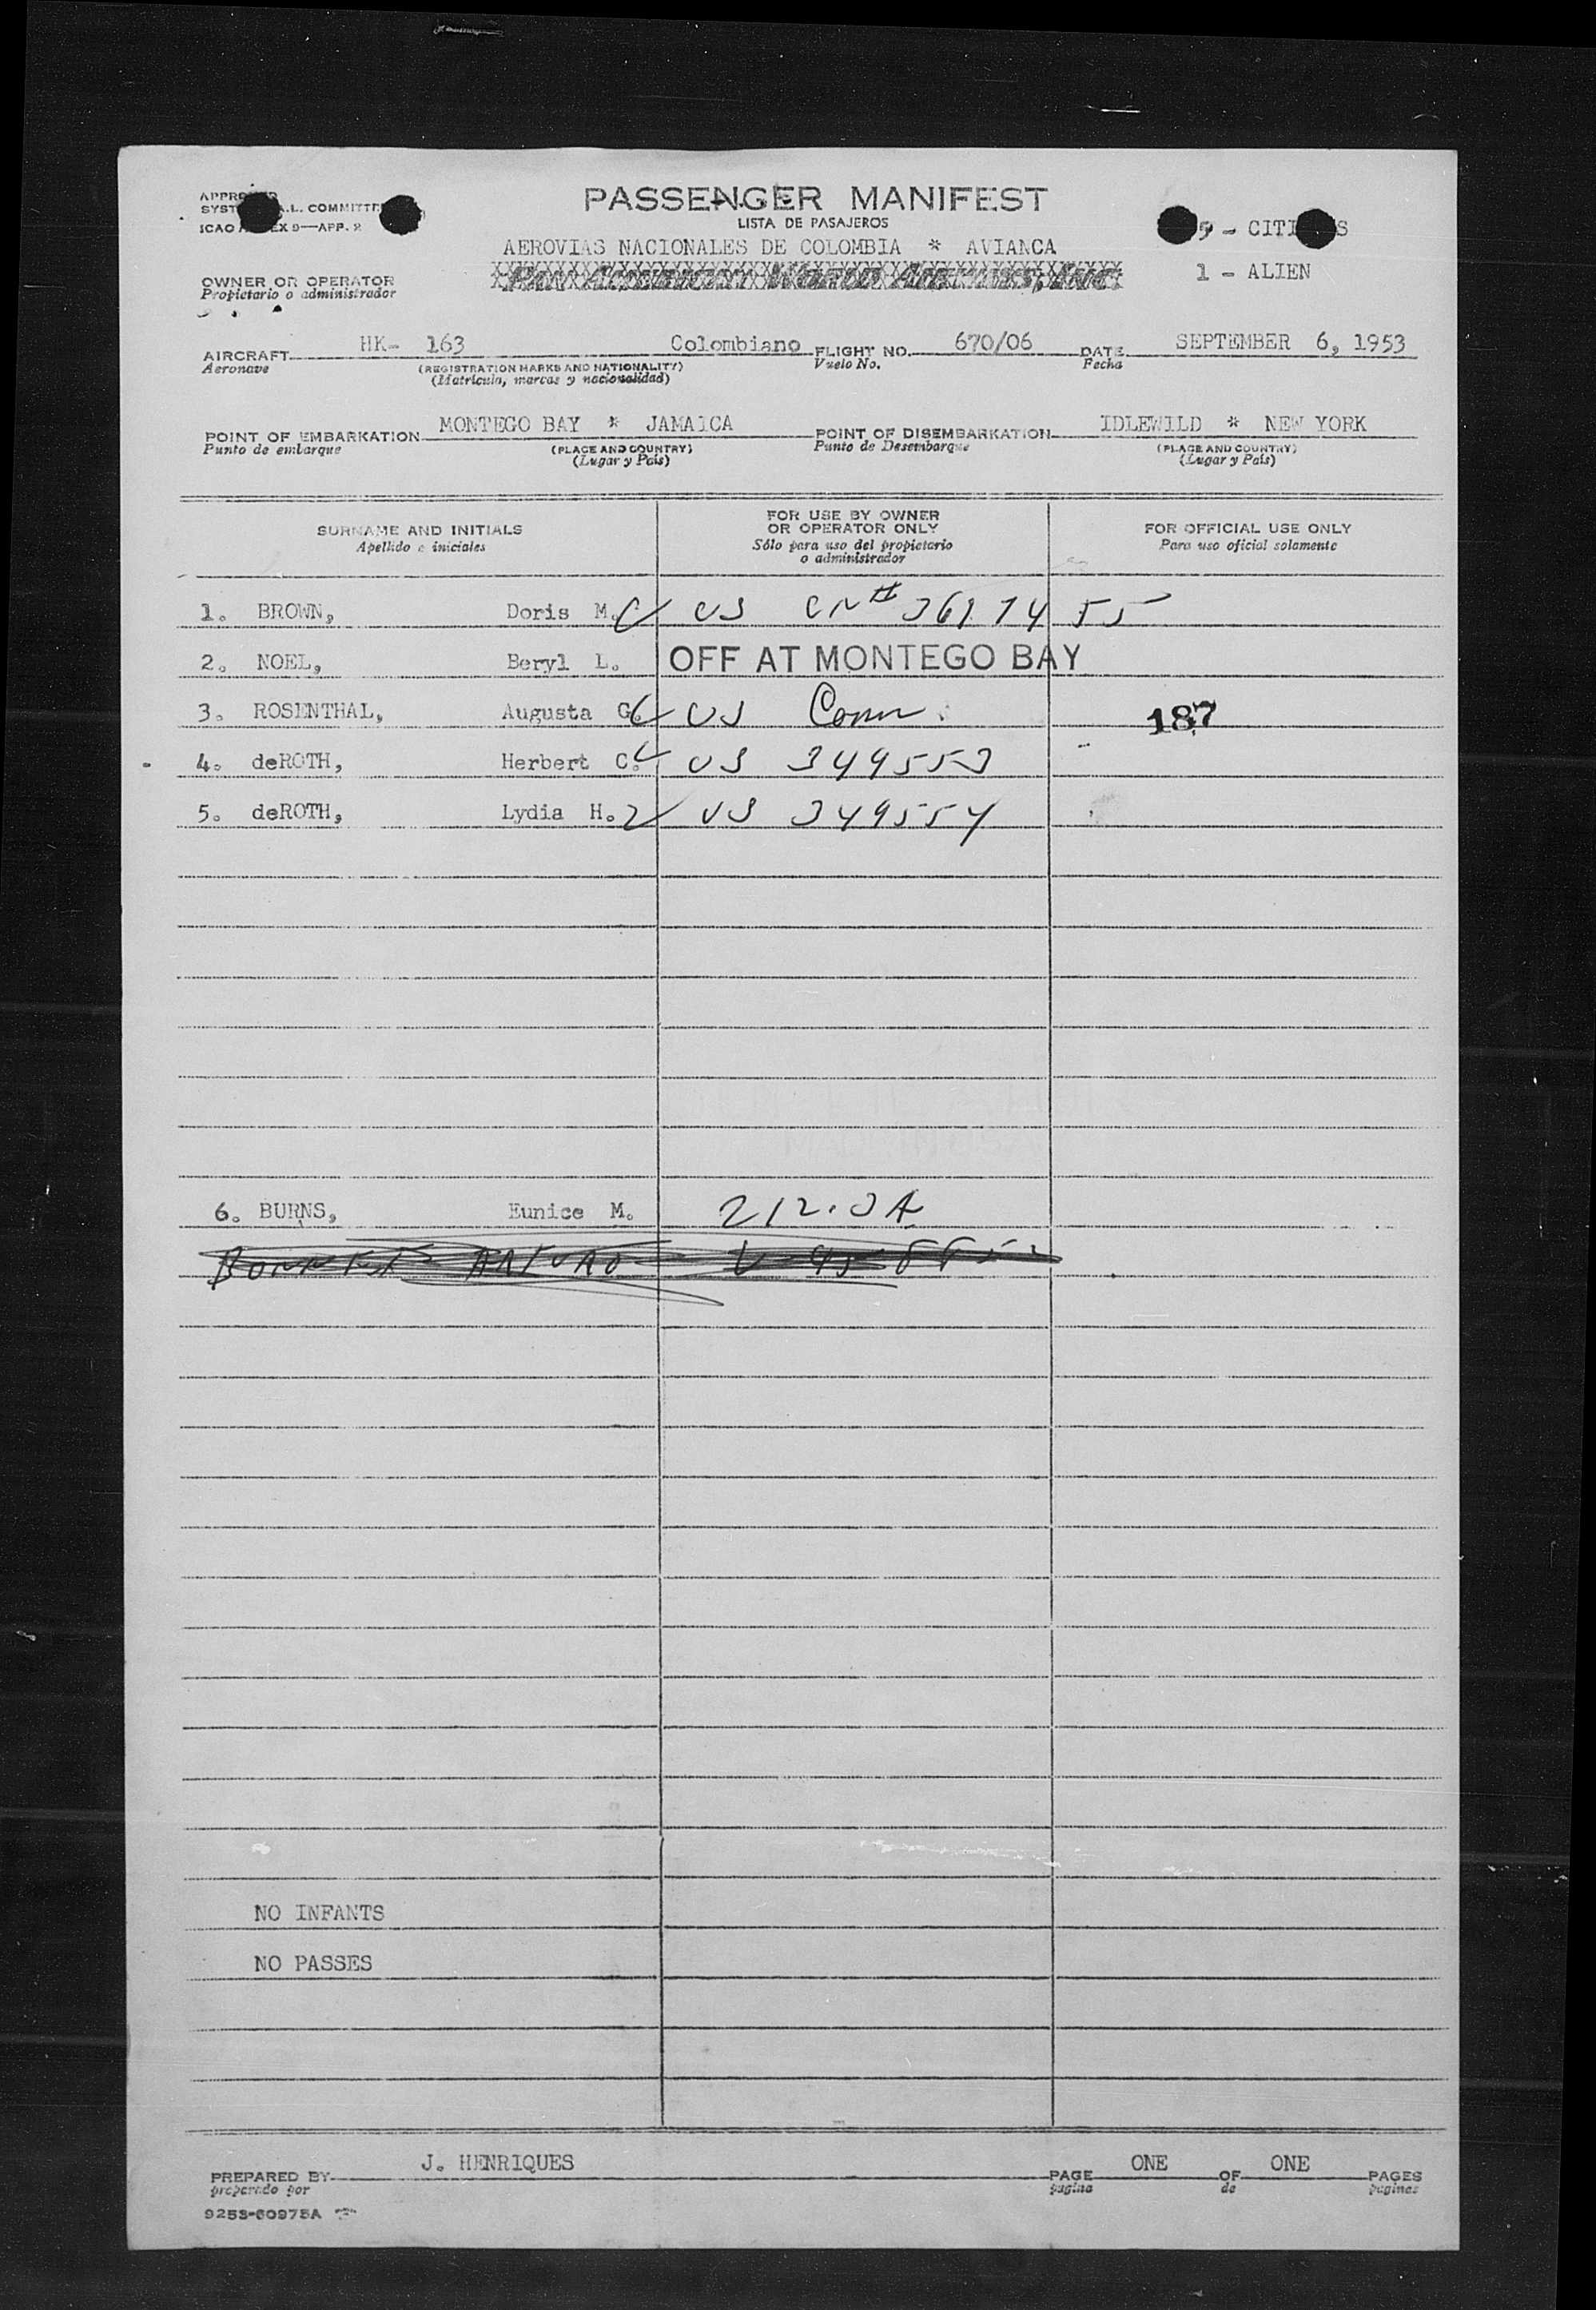 PASSENGER MANIFEST
LISTA DE PASAJEROS
AEROVIAS NACIONALES DE COLOMBIA * AVIANCA
PAN AMERICAN WORLD AIRWAYS, INC.
5 - CITI S
1 - ALIEN
OWNER OR OPERATOR
Propietario o administrador
AIRCRAFT HK- 163 Colombiano FLIGHT NO. 670/06 DATE SEPTEMBER 6, 1953
Aeronave (REGISTRATION MARKS AND NATIONALITY) Vuelo No. Fecha
(Matrícula, marcas y nacionalidad)
POINT OF EMBARKATION MONTEGO BAY * JAMAICA POINT OF DISEMBARKATION IDLEWILD * NEW YORK
Punto de embarque (PLACE AND COUNTRY) Punto de Desembarque (PLACE AND COUNTRY)
(Lugar y País) (Lugar y País)
SURNAME AND INITIALS
Apellido e iniciales
FOR USE BY OWNER
OR OPERATOR ONLY
Sólo para uso del propietario
o administrador
FOR OFFICIAL USE ONLY
Para uso oficial solamente
1. BROWN, Doris M. US
2. NOEL, Beryl L. OFF AT MONTEGO BAY
3. ROSENTHAL, Augusta G. US Conn. 187
4. deROTH, Herbert C. US 349553
5. deROTH, Lydia H. US 349554
6. BURNS, Eunice M.
ARTURO
NO INFANTS
NO PASSES
PREPARED BY J. HENRIQUES PAGE ONE OF ONE PAGES
preparado por pagina de paginas
9253-60975A